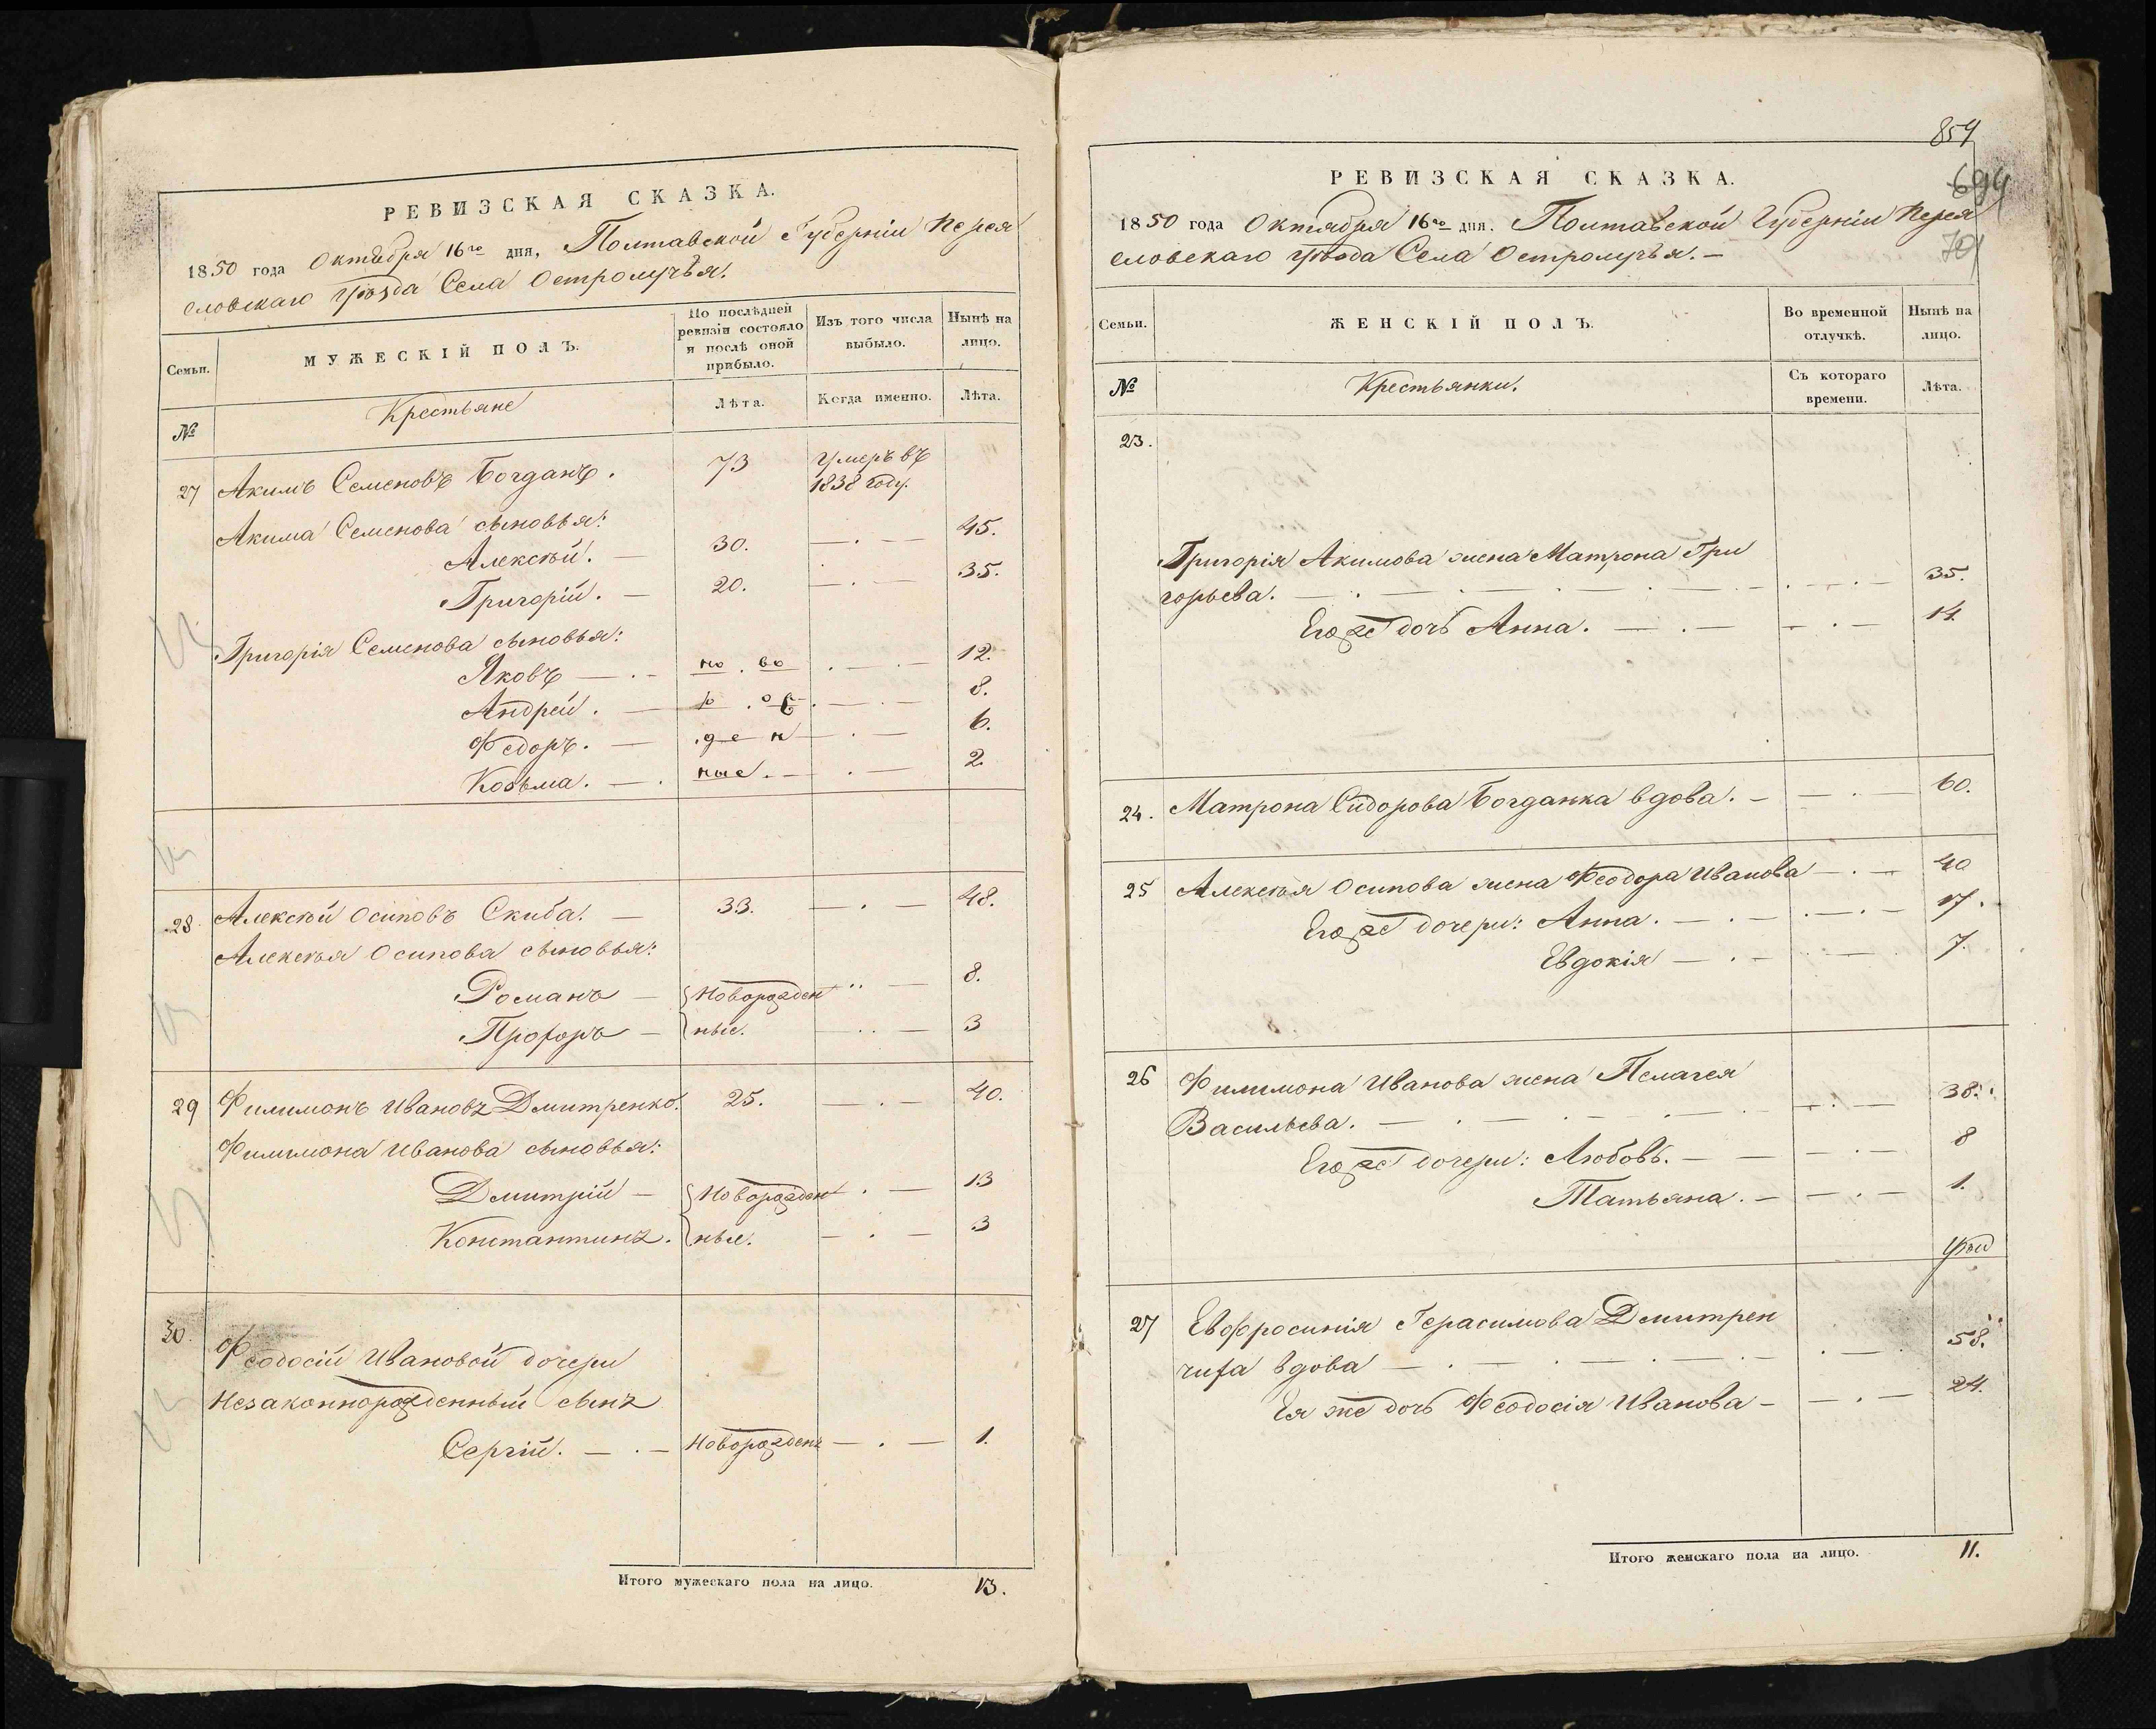 РЕВИЗСКАЯ СКАЗКА.
1850 года Октября 16го дня, Полтавской Губерніи Перея
словскаго уѣзда Села Остролучья.
Семьи.
МУЖЕСКІЙ ПОЛЪ.
По послѣдней
ревизіи состояло
и послѣ оной
прибыло.
Изъ того числа
выбыло.
Нынѣ на
лицо.
№
Крестьяне
Лѣта.
Когда именно.
Лѣта.
27 Акимъ Семеновъ Богданъ. 73 Умеръ въ
1838 году.
Акима Семенова сыновья:
Алексѣй. 30. 45.
Григорій. 20. 35.
Григорія Семенова сыновья:
Яковъ но.во 12.
Андрей. р.ож 8.
Федоръ. .ден 6.
Козьма. ные. 2.
28 Алексѣй Осиповъ Скиба. 33. 48.
Алексѣя Осипова сыновья:
Романъ Новорожден 8.
Прохоръ ные. 3
29 Филимонъ Ивановъ Дмитренко. 25. 40.
Филимона Иванова сыновья:
Дмитрій Новорожден 13
Константинъ. ные. 3
30. Феодосіи Ивановой дочери
Незаконнорожденный сынъ
Сергій. Новорожденъ 1.
Итого мужескаго пола на лицо. 13.
854
694
701
РЕВИЗСКАЯ СКАЗКА.
1850 года Октября 16го дня. Полтавской Губерніи Перея
словскаго уѣзда Села Остролучья.
Семьи.
ЖЕНСКІЙ ПОЛЪ.
Во временной
отлучкѣ.
Нынѣ на
лицо.
№
Крестьянки.
Съ котораго
времени.
Лѣта.
23.
Григорія Акимова жена Матрона Гри
горьева. 35.
Его же дочь Анна. 14.
24. Матрона Сидорова Богданка вдова. 60.
25 Алексѣя Осипова жена Феодора Иванова 40
Его же дочери: Анна. 17.
Евдокія 7.
26 Филимона Иванова жена Пелагея
Васильева. 38.
Его же дочери: Любовь. 8
Татьяна. 1.
27 Евфросинія Герасимова Дмитрен
чиха вдова 58.
Ея же дочь Феодосія Иванова 24.
Итого женскаго пола на лицо. 11.